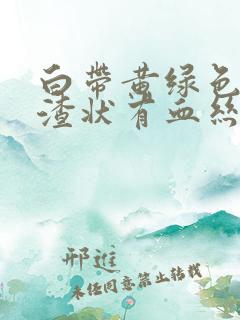 白帶黄绿色
渣状有血絲
邢進
未经同意禁止转载